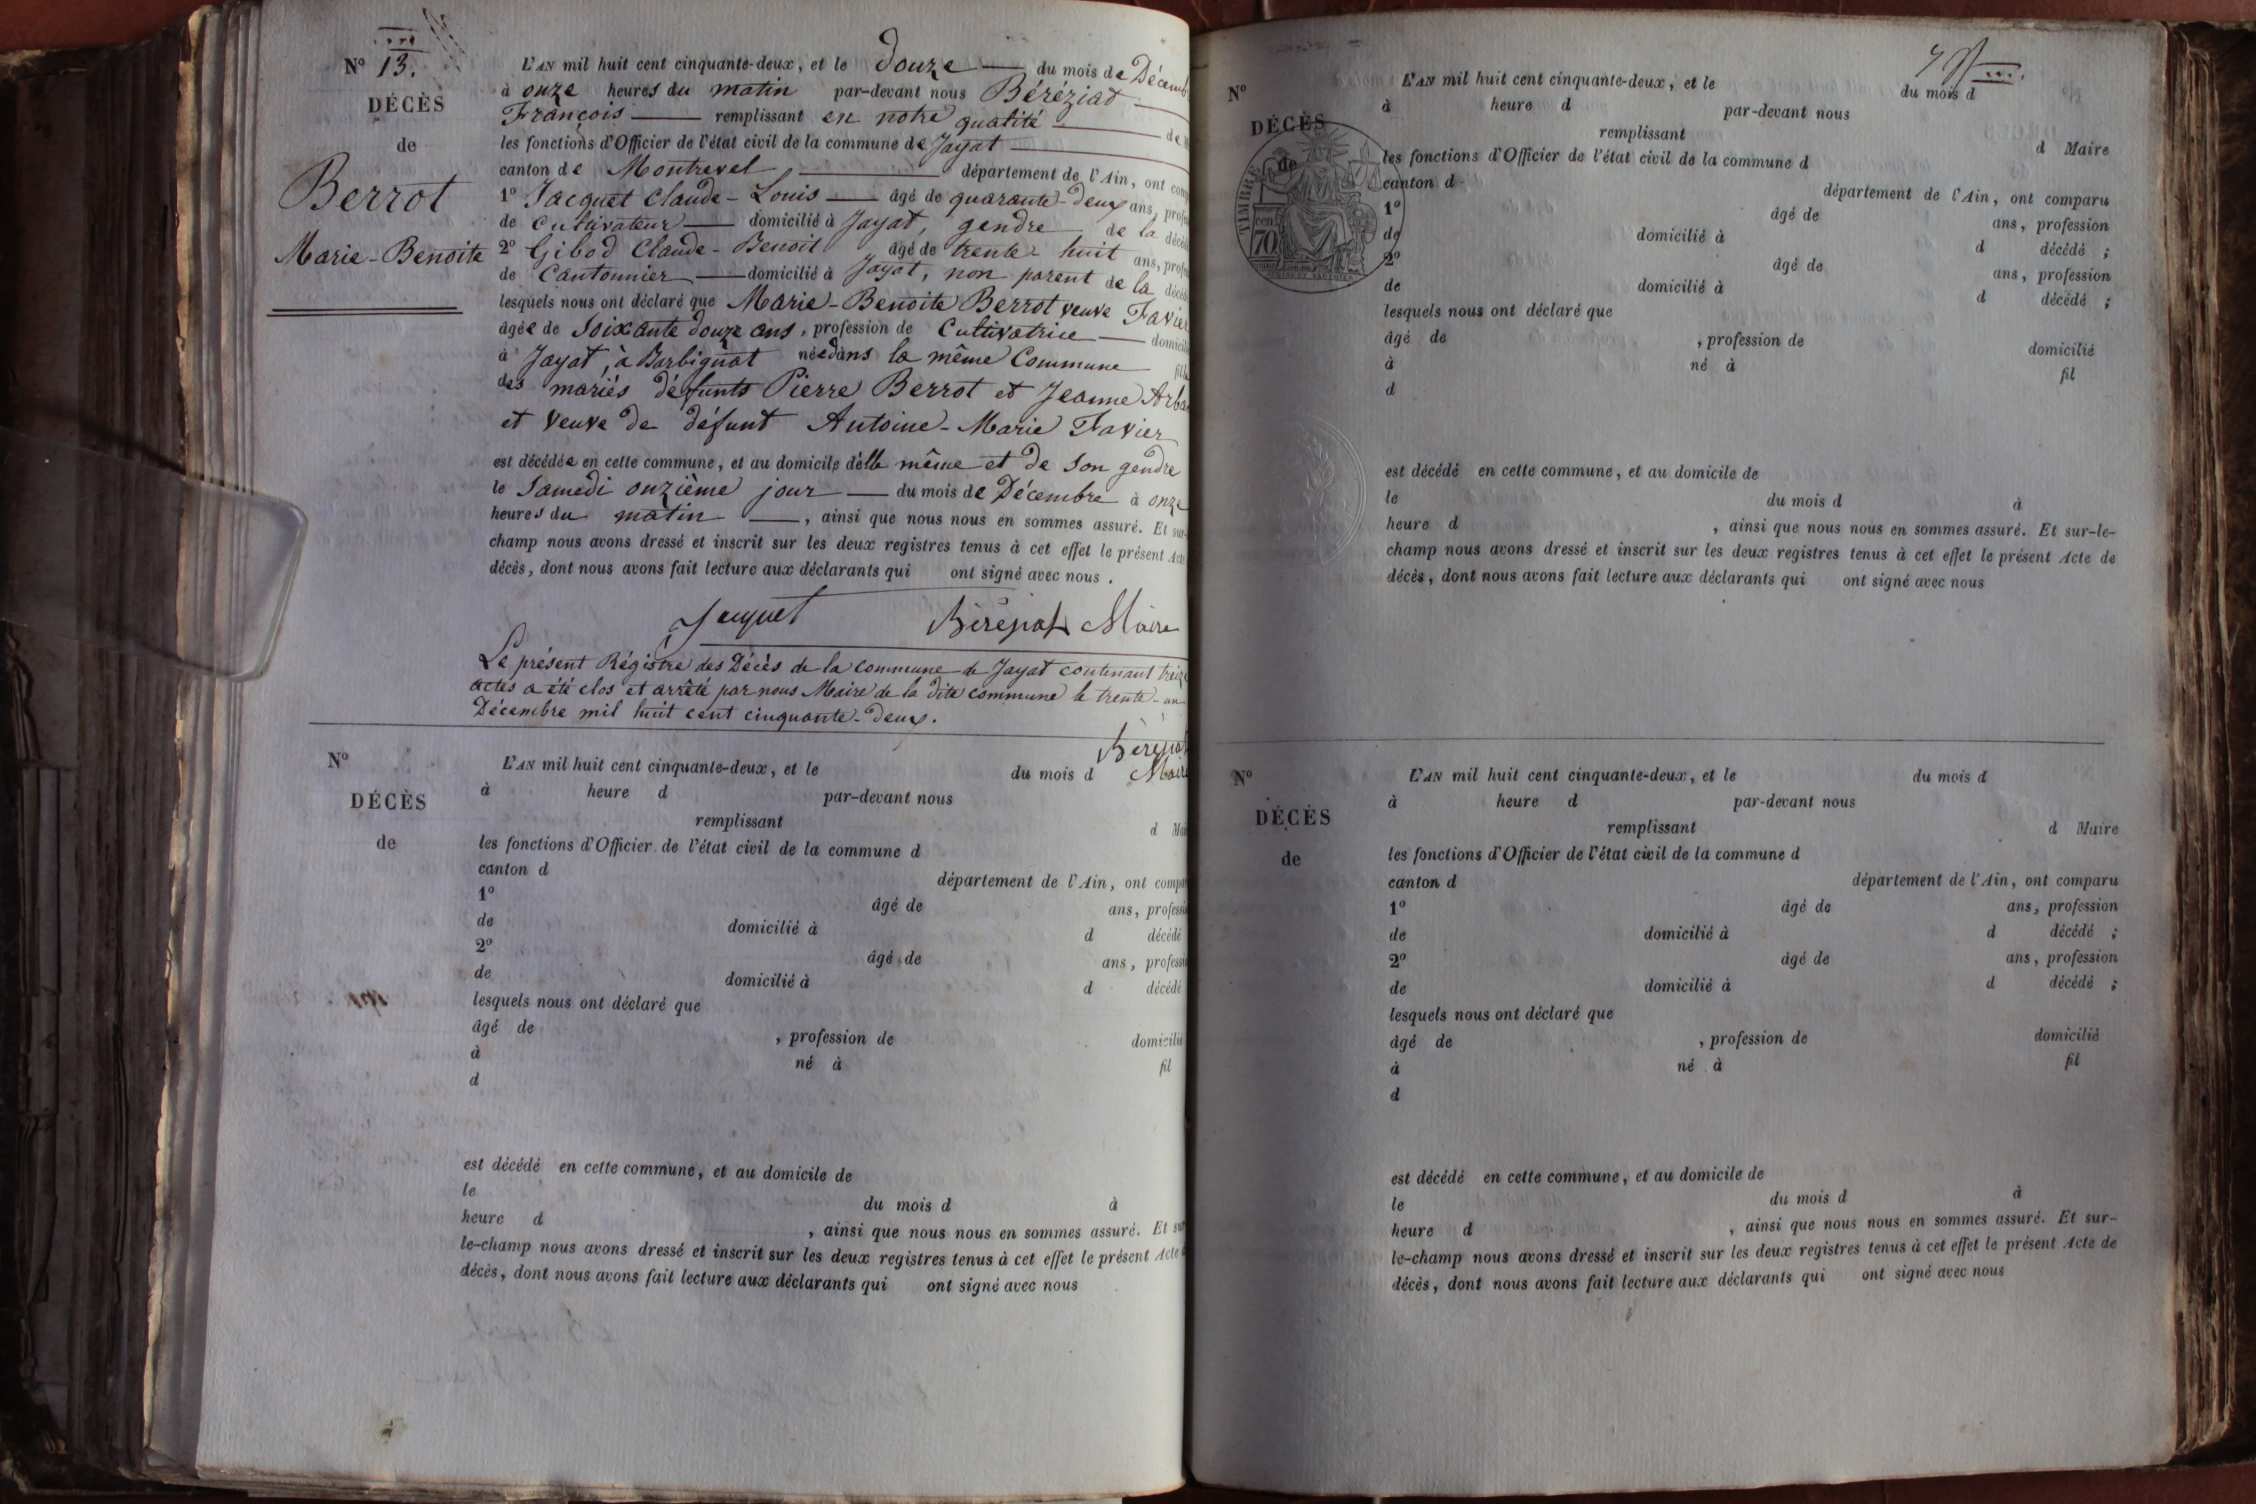 Nº 13.
DÉCÈS
de
Berrot
Marie-Benoite
L'AN mil huit cent cinquante-deux, et le douze du mois de Décemb
à onze heures du matin par-devant nous Béréziat
François remplissant en notre qualité de
les fonctions d'Officier de l'état civil de la commune de Jayat
canton de Montrevel département de l'Ain, ont comp
1º Jacquet Claude-Louis âgé de quarante-deux ans, profes
de Cultivateur domicilié à Jayat, gendre de la décéd
2º Gibod Claude-Benoit âgé de trente huit ans, profes
de Cantonnier domicilié à Jayat, non parent de la décéd
lesquels nous ont déclaré que Marie-Benoite Berrot veuve Favier
âgée de Soixante douze ans, profession de Cultivatrice domicili
à Jayat, à Barbignat née dans la même Commune fille
des mariés défunts Pierre Berrot et Jeanne Arba
et veuve de défunt Antoine-Marie Favier
est décédée en cette commune, et au domicile d'elle même et de son gendre
le Samedi onzième jour du mois de Décembre à onze
heures du matin, ainsi que nous nous en sommes assuré. Et sur-
champ nous avons dressé et inscrit sur les deux registres tenus à cet effet le présent Acte
décès, dont nous avons fait lecture aux déclarants qui ont signé avec nous.
Jacquet Béréziat Maire
Le présent Régistre des Décès de la commune de Jayat contenant treize
actes a été clos et arrêté par nous Maire de la dite commune le trente-un
Décembre mil huit cent cinquante-deux.
Béréziat
Maire
Nº
DÉCÈS
de
L'AN mil huit cent cinquante-deux, et le du mois d
à heure d par-devant nous
remplissant d Mai
les fonctions d'Officier de l'état civil de la commune d
canton d département de l'Ain, ont compa
1º âgé de ans, professi
de domicilié à d décédé
2º âgé de ans, professi
de domicilié à d décédé
lesquels nous ont déclaré que
âgé de , profession de domicilié
à né à fil
d
est décédé en cette commune, et au domicile de
le du mois d à
heure d , ainsi que nous nous en sommes assuré. Et sur
le-champ nous avons dressé et inscrit sur les deux registres tenus à cet effet le présent Acte d
décès, dont nous avons fait lecture aux déclarants qui ont signé avec nous
Nº
DÉCÈS
de
TIMBRE
70
L'AN mil huit cent cinquante-deux, et le du mois d
à heure d par-devant nous
remplissant d Maire
les fonctions d'Officier de l'état civil de la commune d
canton d département de l'Ain, ont comparu
1º âgé de ans, profession
de domicilié à d décédé ;
2º âgé de ans, profession
de domicilié à d décédé ;
lesquels nous ont déclaré que
âgé de , profession de domicilié
à né à fil
d
est décédé en cette commune, et au domicile de
le du mois d à
heure d , ainsi que nous nous en sommes assuré. Et sur-le-
champ nous avons dressé et inscrit sur les deux registres tenus à cet effet le présent Acte de
décès, dont nous avons fait lecture aux déclarants qui ont signé avec nous
Nº
DÉCÈS
de
L'AN mil huit cent cinquante-deux, et le du mois d
à heure d par-devant nous
remplissant d Maire
les fonctions d'Officier de l'état civil de la commune d
canton d département de l'Ain, ont comparu
1º âgé de ans, profession
de domicilié à d décédé ;
2º âgé de ans, profession
de domicilié à d décédé ;
lesquels nous ont déclaré que
âgé de , profession de domicilié
à né à fil
d
est décédé en cette commune, et au domicile de
le du mois d à
heure d , ainsi que nous nous en sommes assuré. Et sur-
le-champ nous avons dressé et inscrit sur les deux registres tenus à cet effet le présent Acte de
décès, dont nous avons fait lecture aux déclarants qui ont signé avec nous